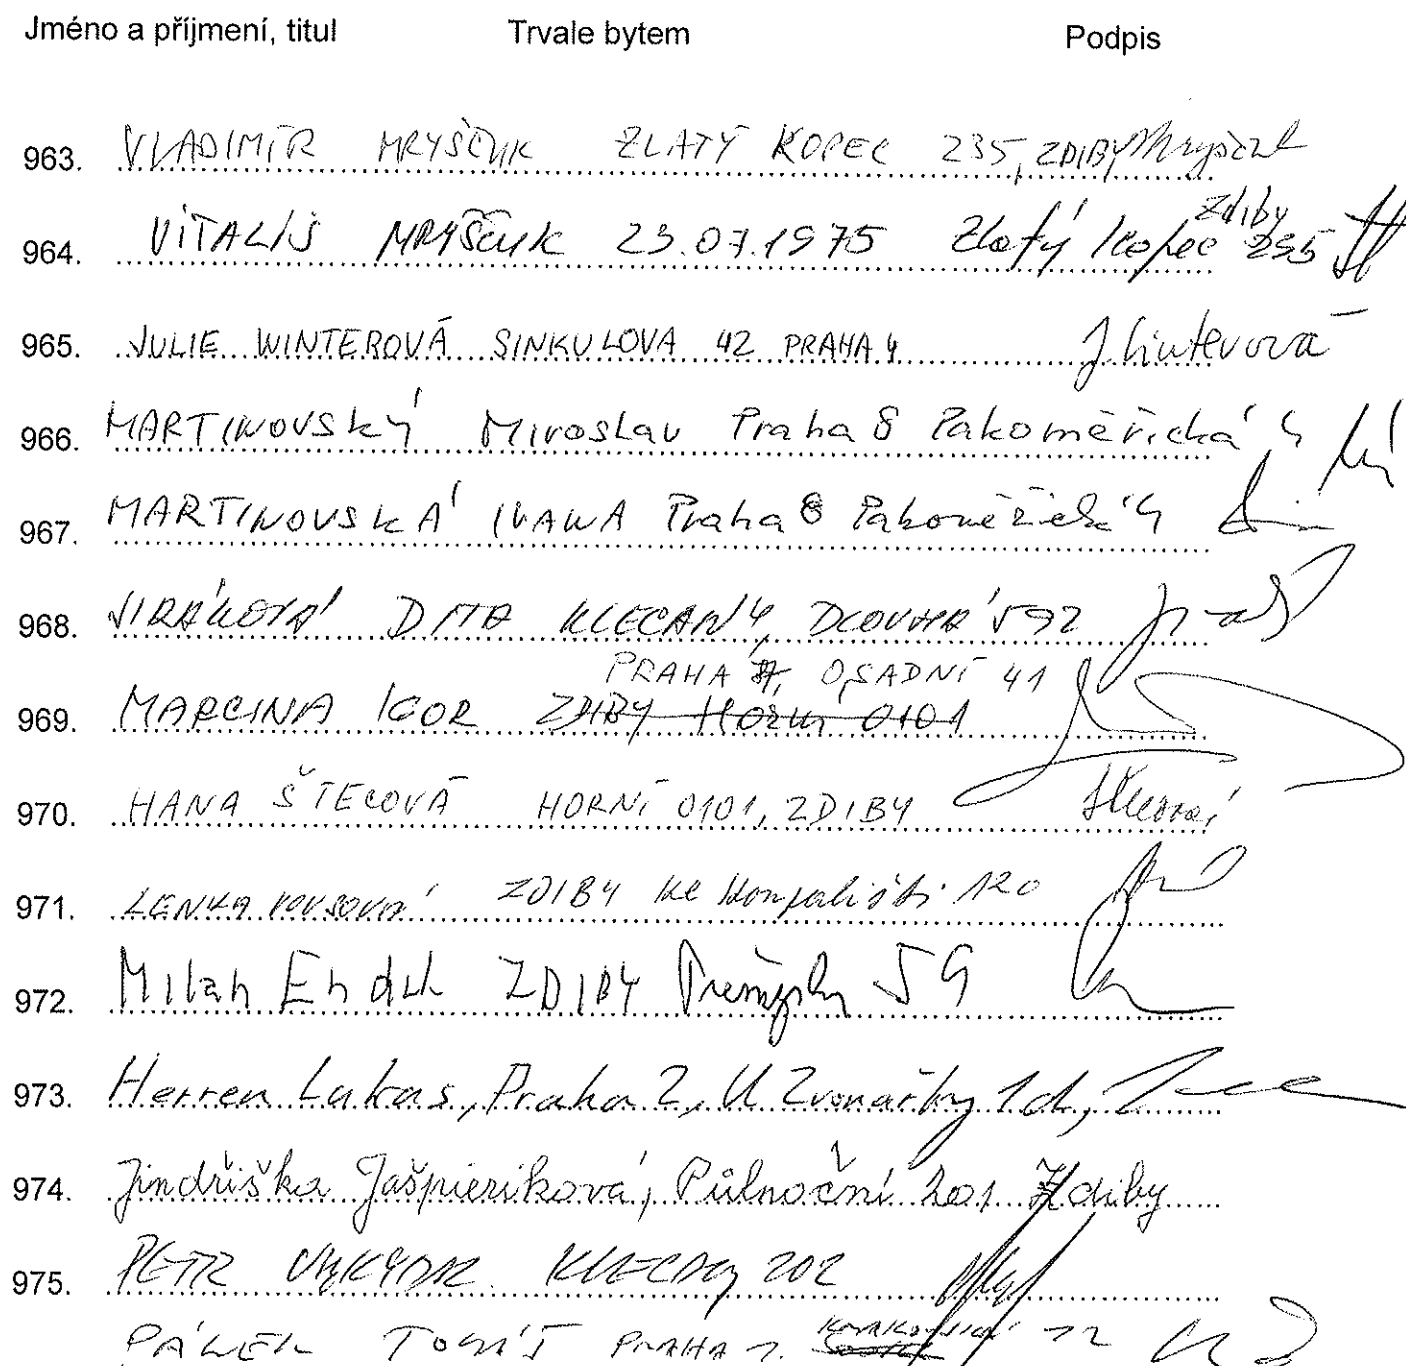 Jméno a příjmení, titul Trvale bytem Podpis
963. VLADIMÍR MRYŠČUK ZLATÝ KOPEC 235, ZDIBY Mryščuk
Zdiby
964. VITALIŠ MRYŠČUK 23.07.1975 Zlatý kopec 235
965. JULIE WINTEROVÁ SINKULOVA 42 PRAHA 4 J. Winterová
966. MARTINOVSKÝ Miroslav Praha 8 Pakoměřická 4
967. MARTINOVSKÁ IVANA Praha 8 Pakoměřická 4
968. JIRÁKOVÁ DITA KLECANY, DLOUHÁ 592
PRAHA 7, OSADNÍ 41
969. MARCINA IGOR ZDIBY Horní 0101
970. HANA ŠTECOVÁ HORNÍ 0101, ZDIBY
971. LENKA ZDIBY Ke Koupališti 120
972. Milan ZDIBY 59
973. Herren Lukas, Praha 2, U Zvonařky 1d,
974. Jindřiška Jašpieriková, Půlnoční 201 Zdiby
975. PETR VYKYDAL KLECANY 202
TOMÁŠ PRAHA 12